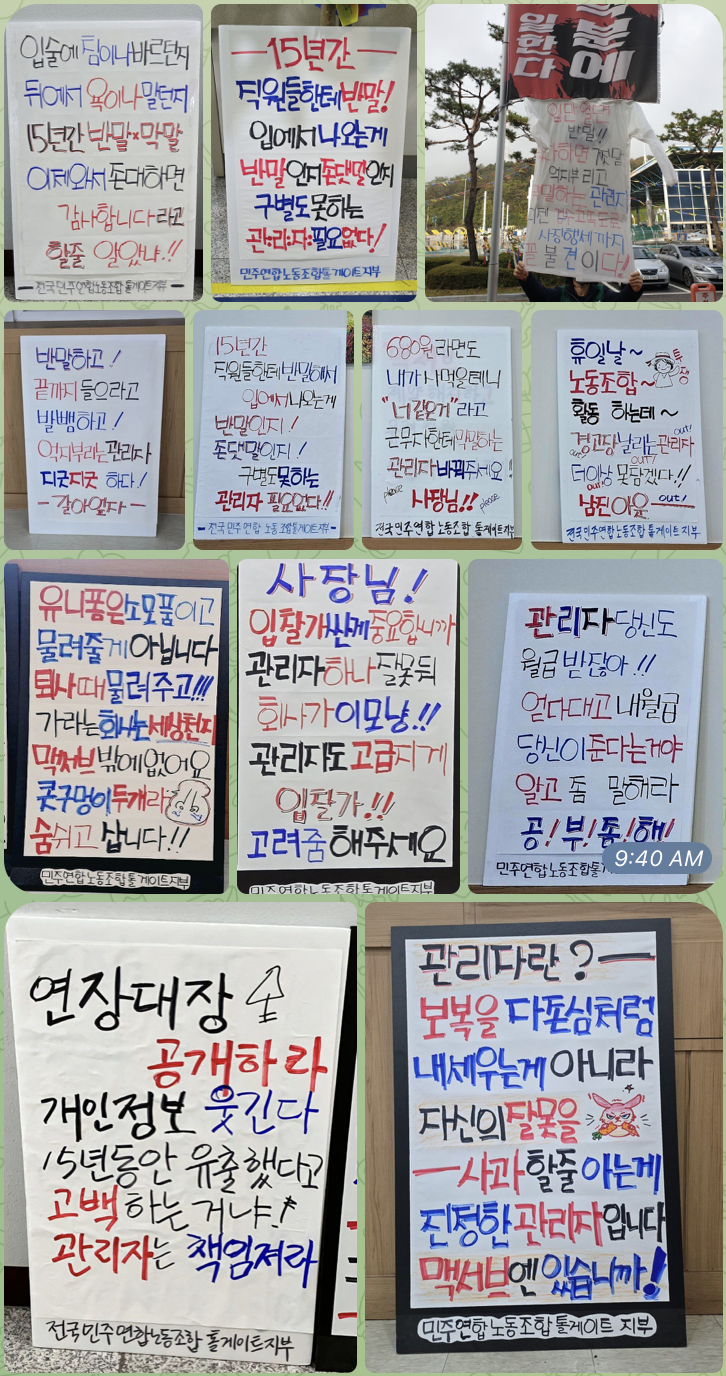 입술에 침이나 바르던지
뒤에서 욕이나 말던지
15년간 반말×막말
이제와서 존대하면
감사합니다 라고
할줄 알았냐.!!
전국민주연합노동조합톨게이트지부
15년간
직원들한테 반말!
입에서 나오는게
반말인지 존댓말인지
구별도 못하는
관:리:자:필요없다!
민주연합노동조합톨게이트지부
일한다
분에
입만 열면
반말!!
억지부리고
하는 관리자
사장행세까지
꼴불견이다!
반말하고!
끝까지 들으라고
발뺌하고!
억지부리는 관리자
지긋지긋 하다!
갈아엎자
15년간
직원들한테 반말해서
입에서 나오는게
반말인지!
존댓말인지!
구별도 못하는
관리자 필요없다!!
전국민주연합 노동조합톨게이트지부
680원 라면도
내가 사먹을테니
"너 같은거" 라고
근무자한테 막말하는
관리자 바꿔주세요!!
please 사장님!! please
전국민주연합노동조합 톨게이트지부
휴일날~
투쟁
노동조합~
활동 하는데~
경고장 날리는 관리자
out!
더이상 못참겠다.!!
out! out!
남진아웃 out!
전국민주연합노동조합 톨게이트지부
유니폼은 소모품이고
물려줄게 아닙니다
퇴사때 물려주고!!!
가라는 회사는 세상천지
맥써브 밖에 없어요
콧구멍이 두개라
숨쉬고 삽니다!!
민주연합노동조합톨게이트지부
사장님!
입찰가 싼게 중요합니까
관리자 하나 잘못둬
회사가 이모냥!!
관리자도 고급지게
입찰가!!
고려줌 해주세요
민주연합노동조합톨게이트지부
관리자 당신도
월급 받잖아.!!
얻다대고 내월급
당신이 준다는거야
알고 좀 말해라
공!부!좀!해!
민주연합노동조합톨게
9:40 AM
연장대장
공개하라
개인정보 웃긴다
15년동안 유출했다고
고백하는거냐.!
관리자는 책임져라
전국민주연합노동조합 톨게이트지부
관리자란?
보복을 자존심처럼
내세우는게 아니라
자신의 잘못을
사과할줄 아는게
진정한 관리자입니다
맥써브엔 있습니까!
민주연합노동조합톨게이트 지부